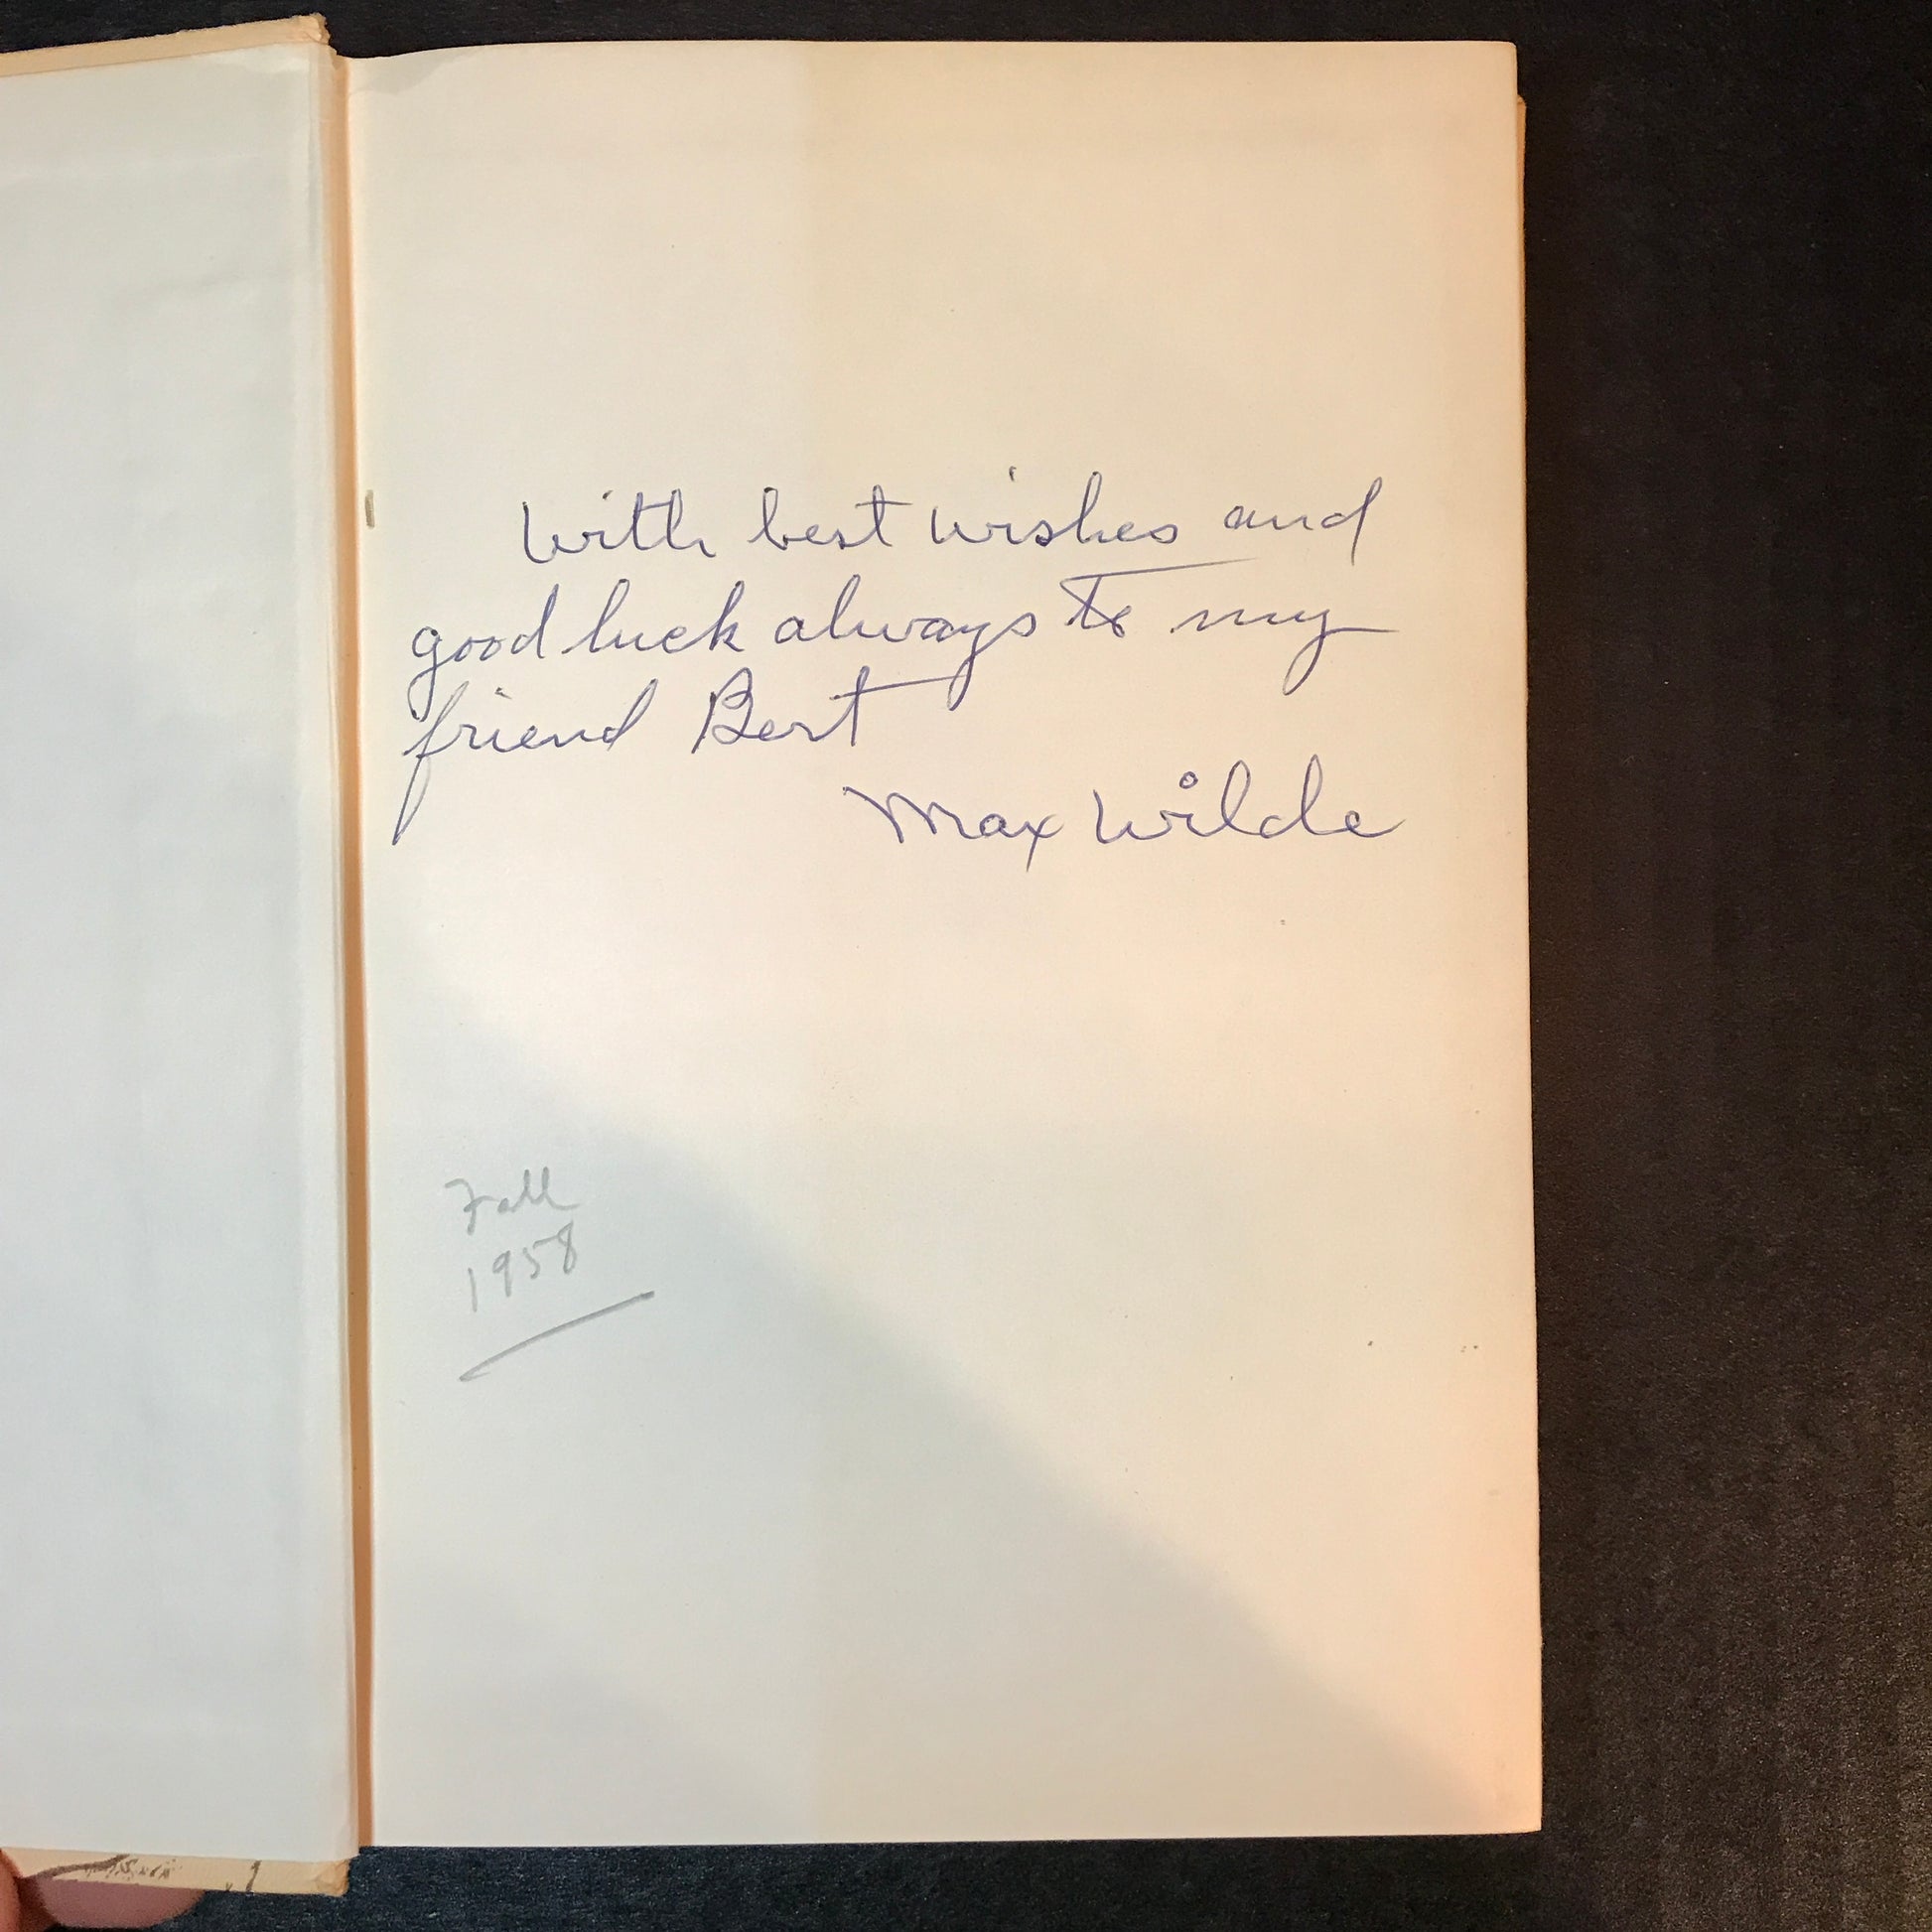 With best wishes and
good luck always to my
friend Bert
Max Wilde
Fall
1958